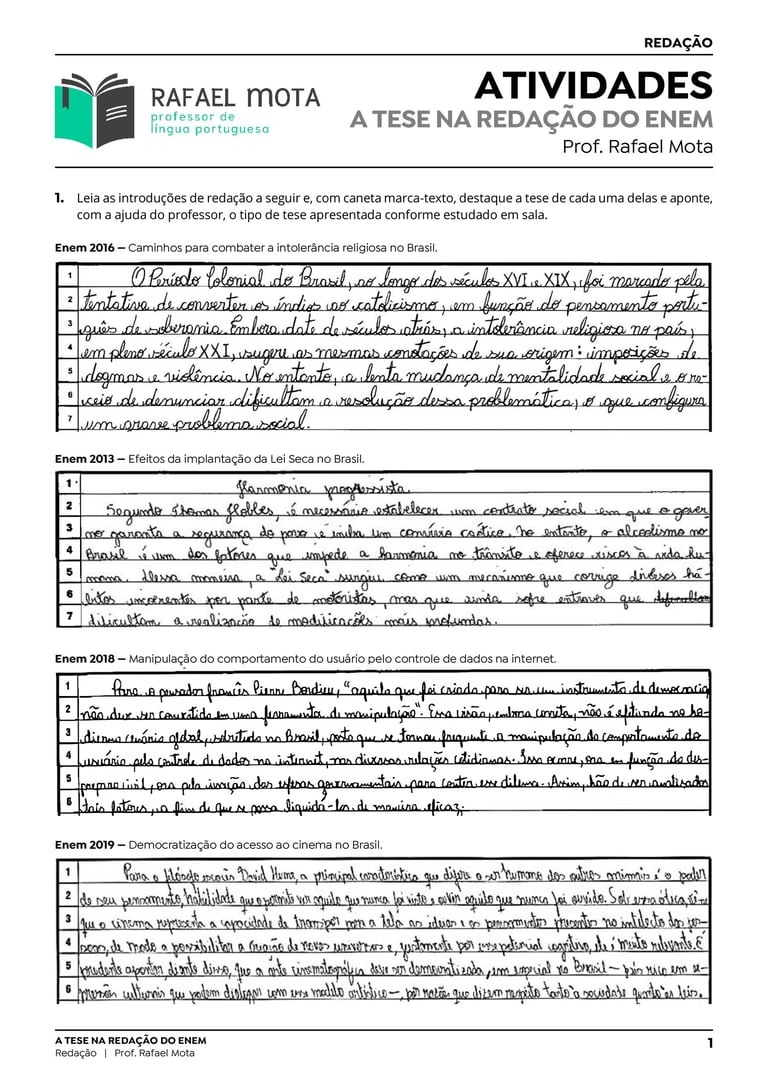 REDAÇÃO
RAFAEL MOTA
professor de
língua portuguesa
ATIVIDADES
A TESE NA REDAÇÃO DO ENEM
Prof. Rafael Mota
1. Leia as introduções de redação a seguir e, com caneta marca-texto, destaque a tese de cada uma delas e aponte,
com a ajuda do professor, o tipo de tese apresentada conforme estudado em sala.
Enem 2016 — Caminhos para combater a intolerância religiosa no Brasil.
1 O Período Colonial do Brasil, ao longo dos séculos XVI e XIX, foi marcado pela
2 tentativa de converter os índios ao catolicismo, em função do pensamento portu-
3 guês de soberania. Embora date de séculos atrás, a intolerância religiosa no país,
4 em pleno século XXI, sugere as mesmas conotações de sua origem: imposições de
5 dogmas e violência. No entanto, a lenta mudança de mentalidade social e o re-
6 ceio de denunciar dificultam a resolução dessa problemática, o que configura
7 um grave problema social.
Enem 2013 — Efeitos da implantação da Lei Seca no Brasil.
1 Harmonia progressista.
2 Segundo Thomas Hobbes, é necessário estabelecer um contrato social em que o gover-
3 no garanta a segurança do povo e iniba um convívio caótico. No entanto, o alcoolismo no
4 Brasil é um dos fatores que impede a harmonia no trânsito e oferece riscos à vida hu-
5 mana. Dessa maneira, a "Lei Seca" surgiu como um mecanismo que corrige diversos há-
6 bitos incoerentes por parte de motoristas, mas que ainda sofre entraves que
7 dificultam a realização de modificações mais profundas.
Enem 2018 — Manipulação do comportamento do usuário pelo controle de dados na internet.
1 Para o pensador francês Pierre Bordieu, "aquilo que foi criado para ser um instrumento de democracia
2 não deve ser convertido em uma ferramenta de manipulação". Essa visão, embora correta, não é efetivada no ho-
3 dierno cenário global, sobretudo no Brasil, posto que se tornou frequente a manipulação do comportamento do
4 usuário pelo controle de dados na internet, nas diversas relações cotidianas. Isso ocorre, ora em função do des-
5 preparo civil, ora pela inação das esferas governamentais para conter esse dilema. Assim, hão de ser analisados
6 tais fatores, a fim de que se possa liquidá-los de maneira eficaz.
Enem 2019 — Democratização do acesso ao cinema no Brasil.
1 Para o filósofo escocês David Hume, a principal característica que difere o ser humano dos outros animais é o poder
2 de seu pensamento, habilidade que o permite ver aquilo que nunca foi visto e ouvir aquilo que nunca foi ouvido. Sob essa ótica, vê-se
3 que o cinema representa a capacidade de transpor para a tela as ideias e os pensamentos presentes no intelecto das pes-
4 soas, de modo a possibilitar a criação de novos universos e, justamente por esse potencial cognitivo, ele é muito relevante. É
5 prudente apontar, diante disso, que a arte cinematográfica deve ser democratizada, em especial no Brasil – país rico em ex-
6 pressões culturais que podem dialogar com esse modelo artístico –, por razões que dizem respeito tanto à sociedade quanto às leis.
A TESE NA REDAÇÃO DO ENEM
Redação | Prof. Rafael Mota
1